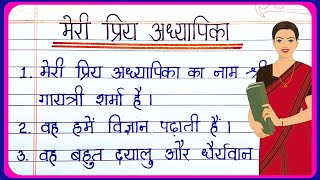 मेरी प्रिय अध्यापिका
1. मेरी प्रिय अध्यापिका का नाम श्री
गायत्री शर्मा है ।
2. वह हमें विज्ञान पढ़ाती हैं ।
3. वह बहुत दयालु और धैर्यवान